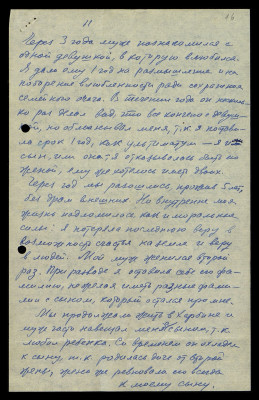 11
Через 3 года муж познакомился с
одной девушкой, в которую влюбился.
Я дала ему 1 год на размышления и на
поборение влюбленности ради сохранения
семейного очага. В течении года он несколь-
ко раз делал вид, что все кончено с девуш-
кой, но обманывал меня, т.к. я постави-
ла срок 1 год, как ультиматум — я и
сын, или она: я отказывалась быть его
женой, ему же хотелось иметь двоих.
Через год мы разошлись, прожив 5 лет,
без драм внешних. Но внутренне моя
жизнь надломилась как и моральные
силы: я потеряла последнюю веру в
возможность счастья на земле и веру
в людей. Мой муж женился второй
раз. При разводе я оставила себе его фа-
милию, не желая иметь разные фами-
лии с сыном, который остался при мне.
Мы продолжали жить в Харбине и
муж часто навещал меня с сыном, т.к.
любил ребенка. Со временем он охладел
к сыну, т.к. родилась дочь от второй
жены, жена же ревновала его всегда
к моему сыну.